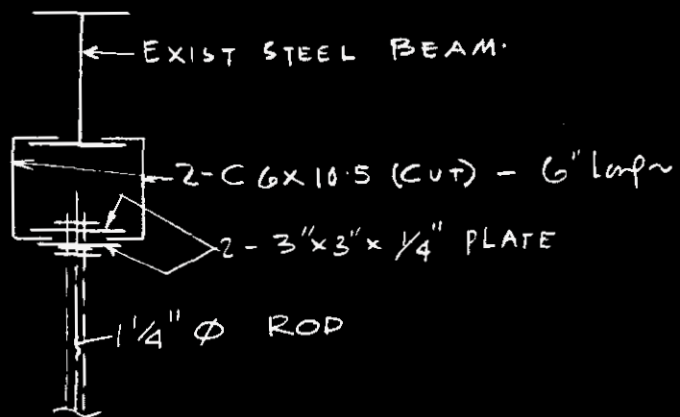 EXIST STEEL BEAM.
2-C 6x10.5 (CUT) - 6" long
2 - 3"x3"x 1/4" PLATE
1 1/4" Ø ROD